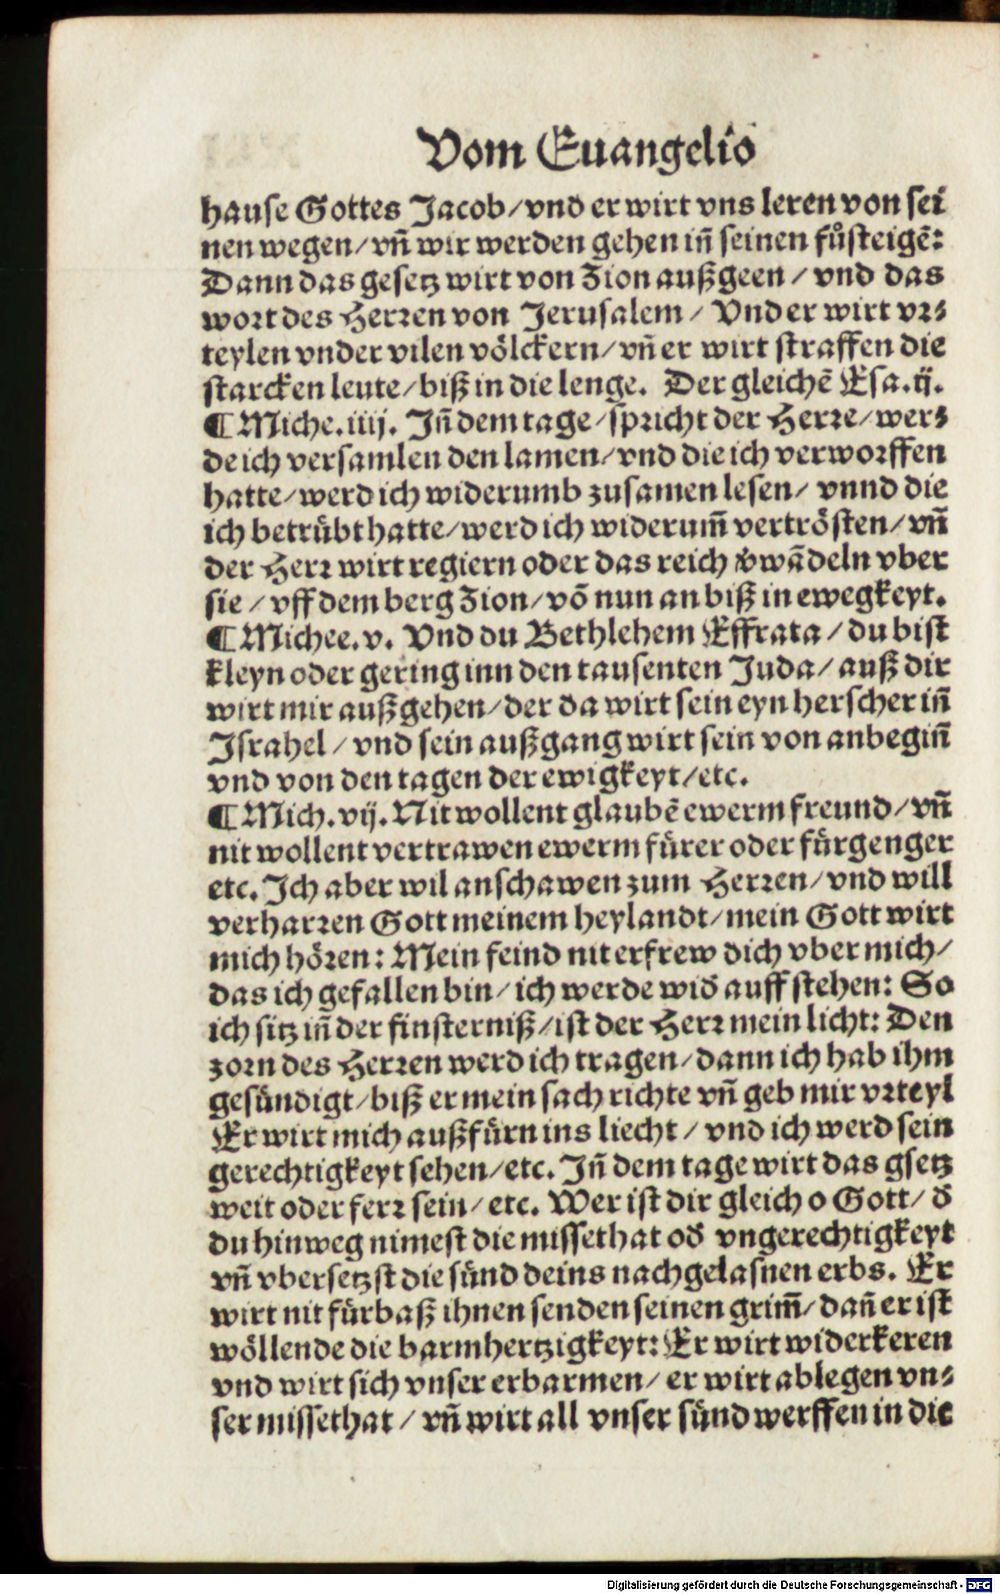 Vom Euangelio
hause Gottes Jacob/vnd er wirt vns leren von sei
nen wegen/vn̄ wir werden gehen in̄ seinen fůsteigē:
Dann das gesetz wirt von Zion außgeen/vnd das
wort des Herren von Jerusalem/Vnd er wirt vr⸗
teylen vnder vilen völckern/vn̄ er wirt straffen die
starcken leute/biß in die lenge. Der gleichē Esa.ij.
¶ Miche.iiij. In̄ dem tage/spricht der Herre/wer⸗
de ich versamlen den lamen/vnd die ich verworffen
hatte/werd ich widerumb zusamen lesen/vnnd die
ich betrübt hatte/werd ich widerum̄ vertrösten/vn̄
der Herr wirt regiern oder das reich v̄wādeln vber
sie/vff dem berg Zion/vō nun an biß in ewegkeyt.
¶ Michee.v. Vnd du Bethlehem Effrata/du bist
kleyn oder gering inn den tausenten Juda/auß dir
wirt mir außgehen/der da wirt sein eyn herscher in̄
Israhel/vnd sein außgang wirt sein von anbegin̄
vnd von den tagen der ewigkeyt/etc.
¶ Mich.vij. Nit wollent glaubē ewerm freund/vn̄
nit wollent vertrawen ewerm fürer oder fürgenger
etc. Ich aber wil anschawen zum Herren/vnd will
verharren Gott meinem heylandt/mein Gott wirt
mich hören: Mein feind nit erfrew dich vber mich/
das ich gefallen bin/ich werde wid̄ auff stehen: So
ich sitz in̄ der finsterniß/ist der Herr mein licht: Den
zorn des Herren werd ich tragen/dann ich hab ihm
gesündigt/biß er mein sach richte vn̄ geb mir vrteyl
Er wirt mich außfürn ins liecht/vnd ich werd sein
gerechtigkeyt sehen/etc. In̄ dem tage wirt das gsetz
weit oder ferr sein/etc. Wer ist dir gleich o Gott/d̄
du hinweg nimest die missethat od̄ vngerechtigkeyt
vn̄ vbersetzst die sünd deins nachgelasnen erbs. Er
wirt nit fürbaß ihnen senden seinen grim̄/dan̄ er ist
wöllende die barmhertzigkeyt: Er wirt widerkeren
vnd wirt sich vnser erbarmen/er wirt ablegen vn⸗
ser missethat/vn̄ wirt all vnser sünd werffen in die
Digitalisierung gefördert durch die Deutsche Forschungsgemeinschaft - DFG